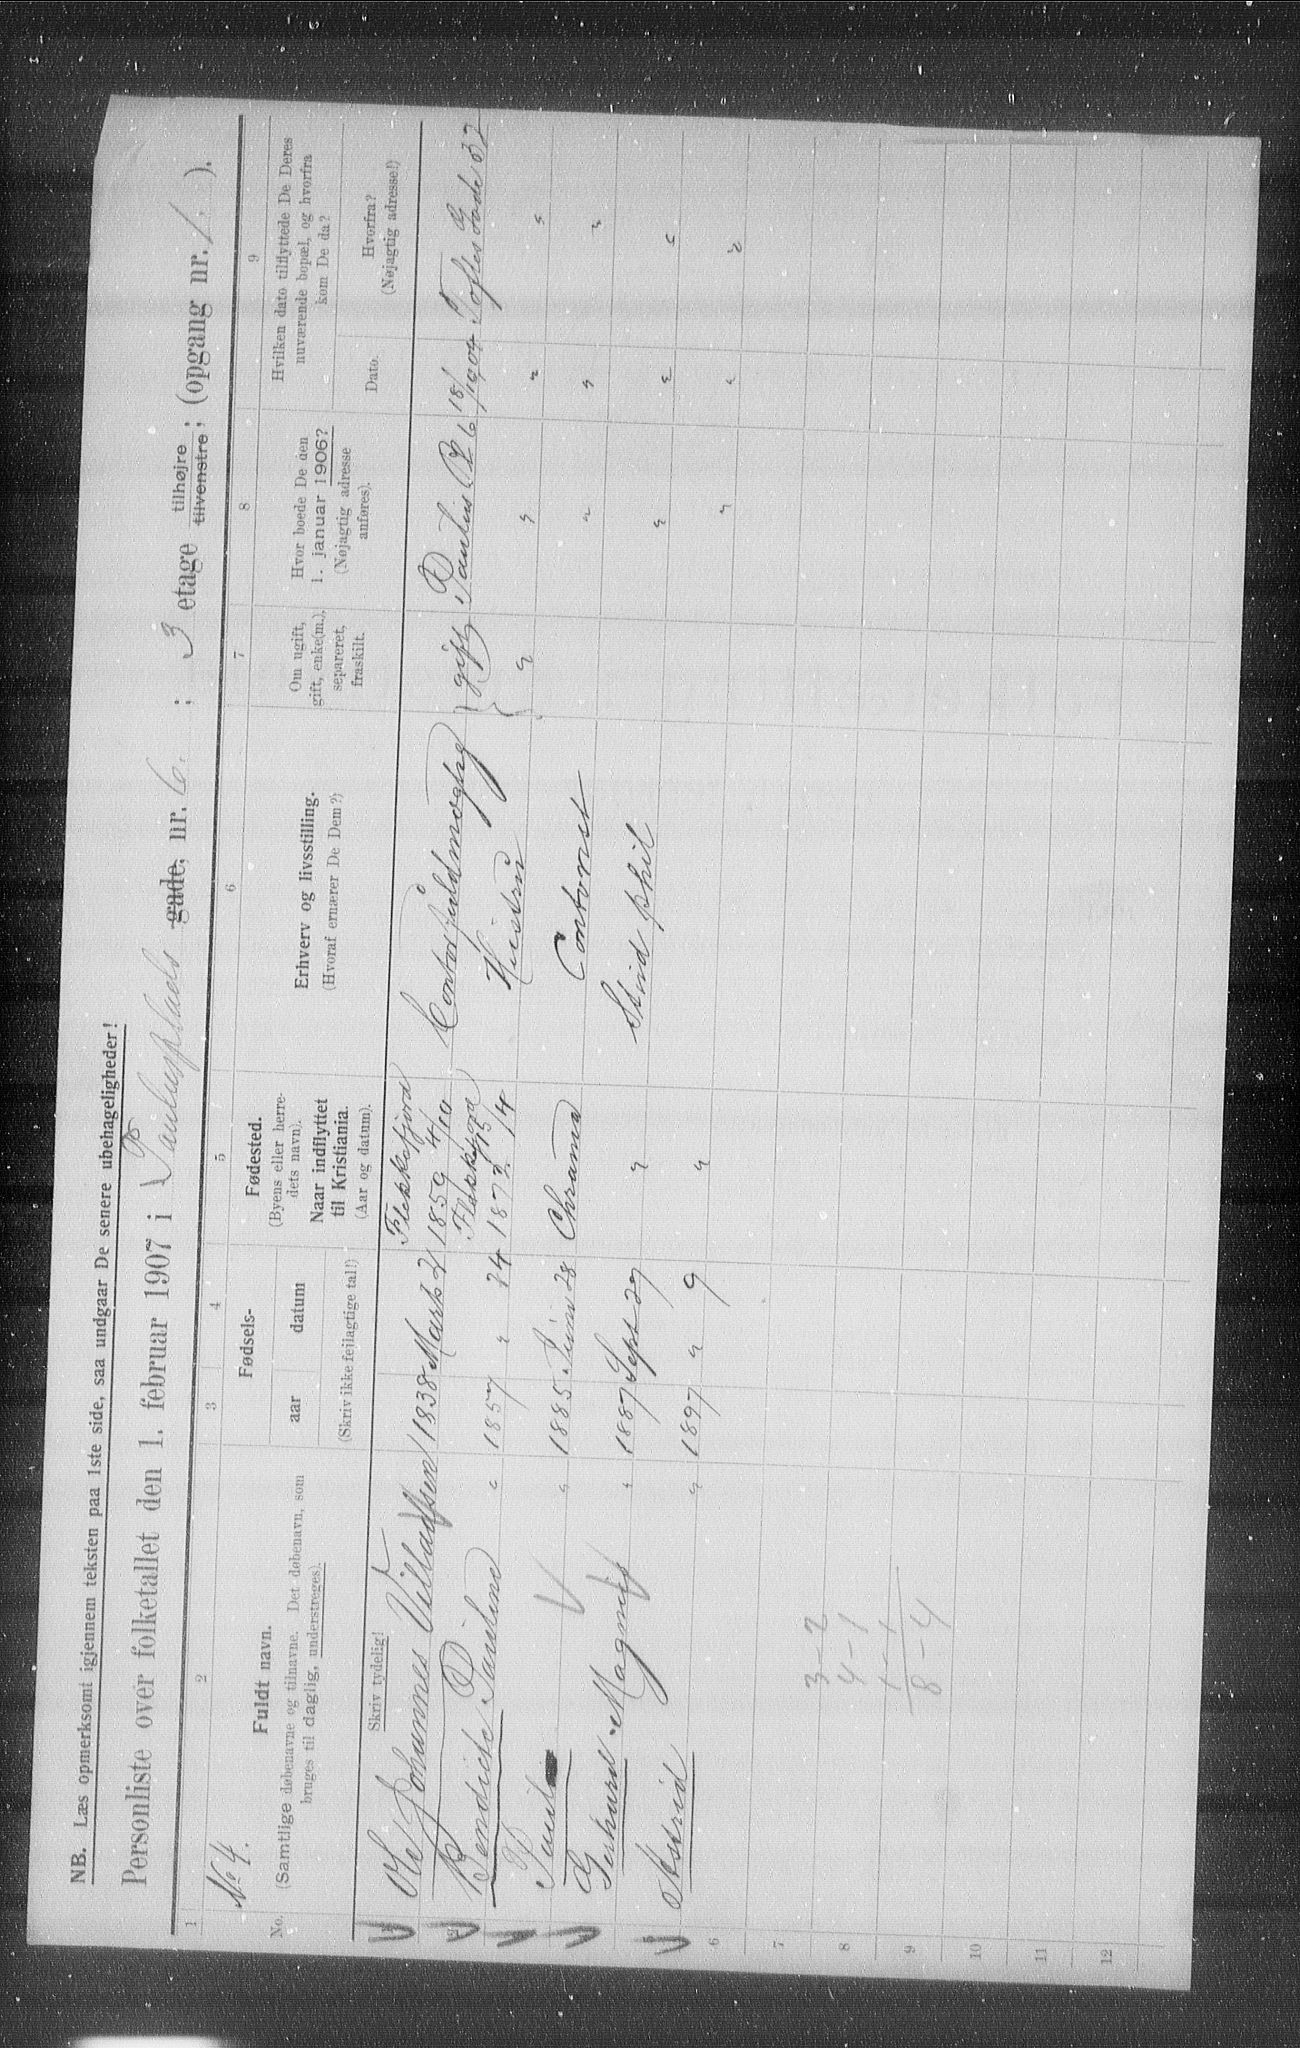 NB. Læs opmerksomt igjennem teksten paa 1ste side, saa undgaar De senere ubehageligheder!
Personliste over folketallet den 1. februar 1907 i Paulusplads gade, nr. 6. ; 3 etage tilhøjre tilvenstre; (opgang nr. 1. ).
1 2 3 4 5 6 7 8 9
No. 4.
No.
Fuldt navn.
(Samtlige døbenavne og tilnavne. Det døbenavn, som
bruges til daglig, understreges).
Skriv tydelig!
Fødsels-
aar datum
(Skriv ikke fejlagtige tal!)
Fødested.
(Byens eller herre-
dets navn).
Naar indflyttet
til Kristiania.
(Aar og datum).
Erhverv og livsstilling.
(Hvoraf ernærer De Dem?)
Om ugift,
gift, enke(m.),
separeret,
fraskilt.
Hvor boede De den
1. januar 1906?
(Nøjagtig adresse
anføres).
Hvilken dato tilflyttede De Deres
nuværende bopæl, og hvorfra
kom De da?
Dato.
Hvorfra?
(Nøjagtig adresse!)
1 Ole Johannes Villadssen 1838 Marts 21 Flekkefjord 1859 4/10 Contorfuldmægtig gift Paulus Pl 6 18/ 1904 Toftes Gade 32
2 Bendicte Pauline " 1857 " 24 Flekkefjord 1872 15/4 Hustru " " " "
Paul " 1885 Juni 28 Chrania Contorist " " "
Gerhard Magnus " 1887 Sept 27 " Stud phil " " "
5 Astrid " 1897 " 9 " " " "
6
7
8
9
10
11
12
3-2
4-1
1-1
8-4